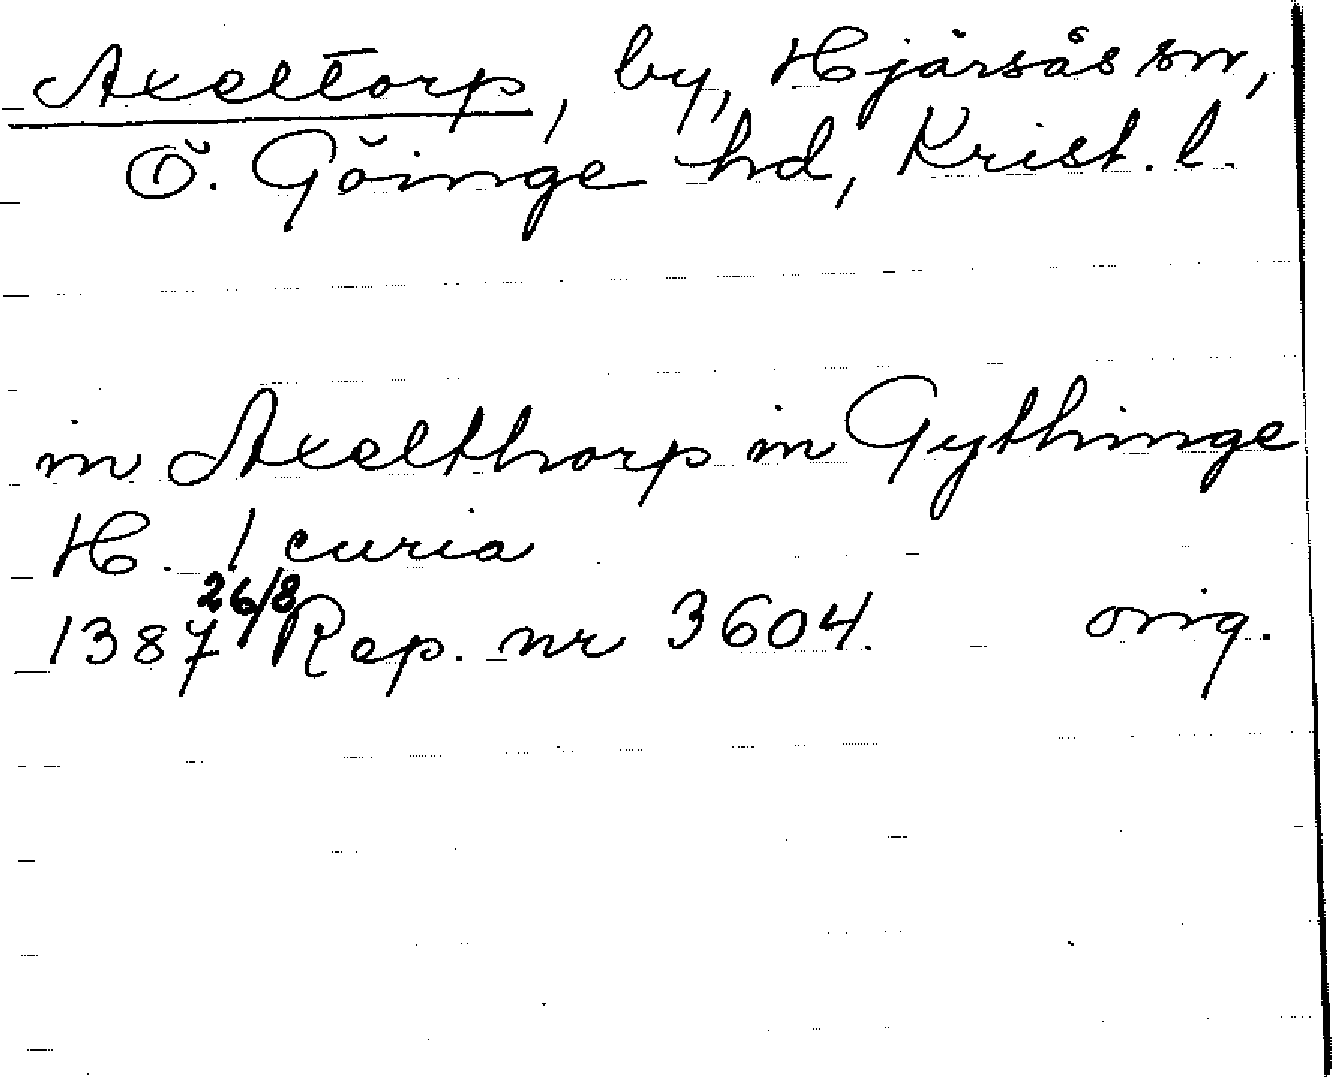 Axeltorp, by, Hjärsås sn,
Ö. Göinge hd, Krist. l.
in Axelthorp in Gythinge
H. 1 curia
1387 26/8 Rep. nr 3604. orig.